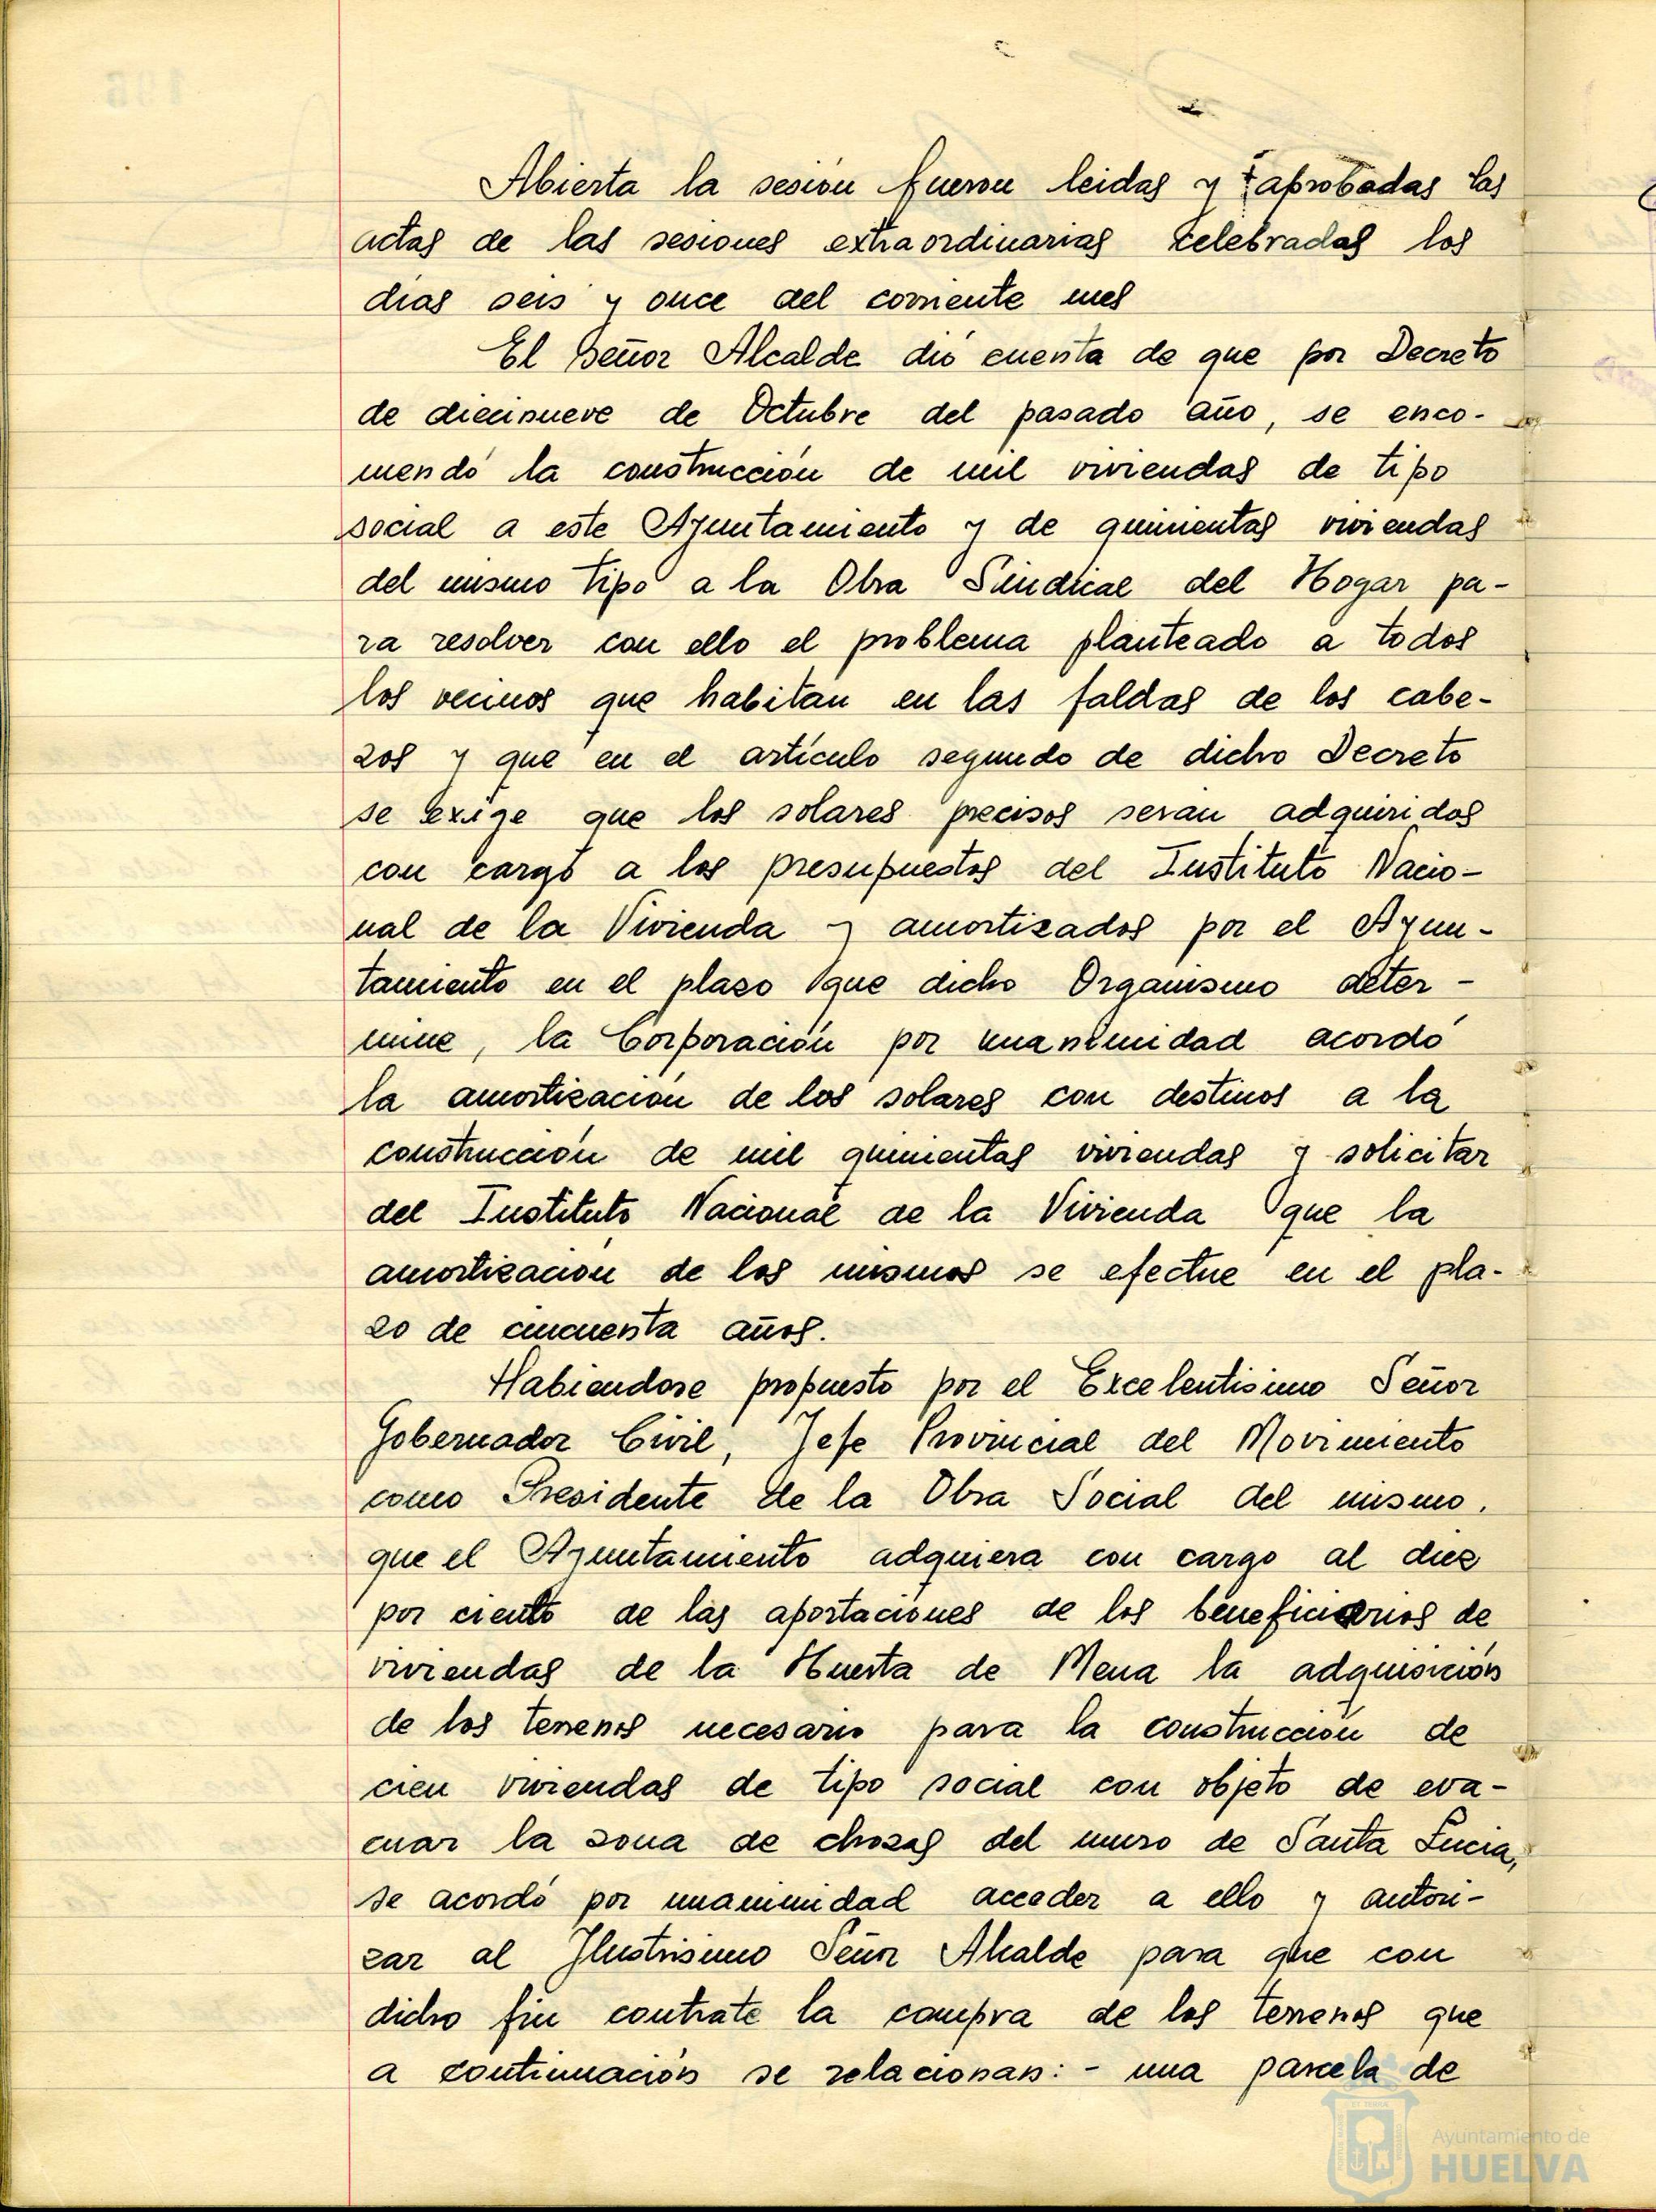 Abierta la sesión fueron leidas y aprobadas las
actas de las sesiones extraordinarias celebradas los
dias seis y once del corriente mes
El Señor Alcalde dió cuenta de que por Decreto
de diecinueve de Octubre del pasado año, se enco-
mendó la construcción de mil viviendas de tipo
social a este Ayuntamiento y de quinientas viviendas
del mismo tipo a la Obra Sindical del Hogar pa-
ra resolver con ello el problema planteado a todos
los vecinos que habitan en las faldas de los cabe-
zos y que en el artículo segundo de dicho Decreto
se exige que los solares precisos seran adquiridos
con cargo a los presupuestos del Instituto Nacio-
nal de la Vivienda y amortizados por el Ayun-
tamiento en el plazo que dicho Organismo deter-
mine, la Corporación por unanimidad acordó
la amortización de los solares con destinos a la
construcción de mil quinientas viviendas y solicitar
del Instituto Nacional de la Vivienda que la
amortización de los mismos se efectue en el pla-
zo de cincuenta años.
Habiendose propuesto por el Excelentisimo Señor
Gobernador Civil, Jefe Provincial del Movimiento
como Presidente de la Obra Social del mismo,
que el Ayuntamiento adquiera con cargo al diez
por ciento de las aportaciones de los beneficiarios de
viviendas de la Huerta de Mena la adquisición
de los terrenos necesario para la construcción de
cien viviendas de tipo social con objeto de eva-
cuar la zona de chozas del muro de Santa Lucia,
se acordó por unanimidad acceder a ello y autori-
zar al Ilustrisimo Señor Alcalde para que con
dicho fin contrate la compra de los terrenos que
a continuación se relacionan: - una parcela de
Ayuntamiento de
HUELVA